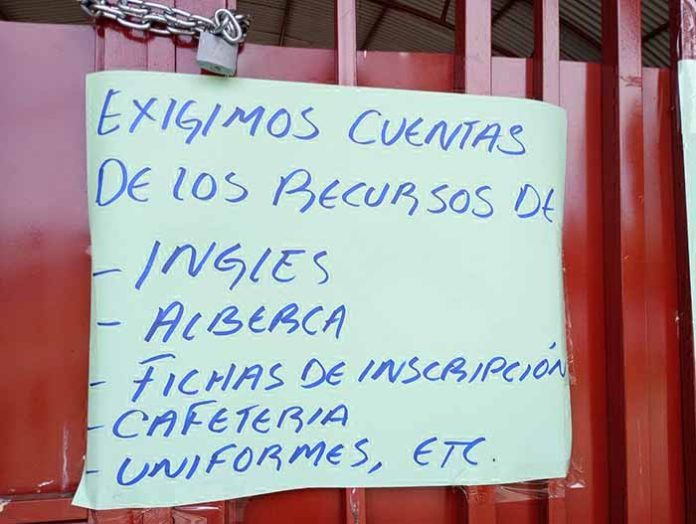 EXIGIMOS CUENTAS
DE LOS RECURSOS DE
- INGLES
- ALBERCA
- FICHAS DE INSCRIPCIÓN
- CAFETERIA
- UNIFORMES, ETC.